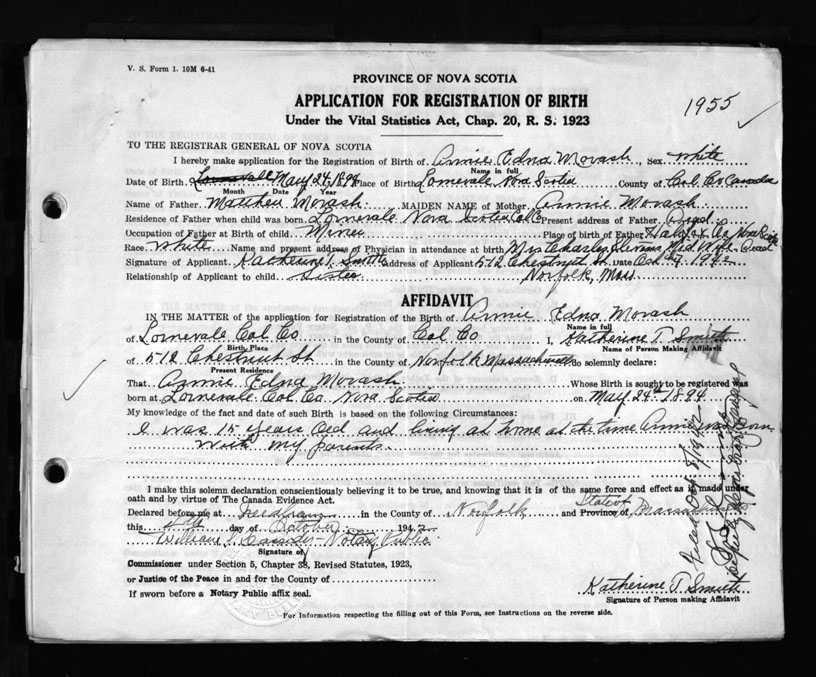 V. S. Form 1. 10M 6-41
PROVINCE OF NOVA SCOTIA
APPLICATION FOR REGISTRATION OF BIRTH
1955 ✓
Under the Vital Statistics Act, Chap. 20, R. S. 1923
TO THE REGISTRAR GENERAL OF NOVA SCOTIA
I hereby make application for the Registration of Birth of Annie Edna Morash, Sex White
Name in full
Date of Birth. May 24, 1894 Place of Birth Lornevale Nova Scotia County of Col. Co Canada
Month Date Year
Name of Father Matthew Morash MAIDEN NAME of Mother Annie Morash
Residence of Father when child was born Lornevale Nova Scotia Col. C. Present address of Father Dead
Occupation of Father at Birth of child Miner Place of birth of Father Halifax Co Nova
Race White Name and present address of Physician in attendance at birth Mrs Charley Mid Wife Dead
Signature of Applicant Katherine T. Smith Address of Applicant 512 Chestnut St Date Oct 1942
Relationship of Applicant to child Sister Norfolk, Mass
AFFIDAVIT
IN THE MATTER of the application for Registration of the Birth of Annie Edna Morash
Name in full
of Lornevale Col. Co in the County of Col Co I, Katherine T. Smith
Birth Place Name of Person Making Affidavit
of 512 Chestnut St in the County of Norfolk Massachusetts do solemnly declare:
Present Residence
That Annie Edna Morash Whose Birth is sought to be registered was
born at Lornevale Col. Co. Nova Scotia on May 24th 1894
My knowledge of the fact and date of such Birth is based on the following Circumstances:
I was 15 years Old and living at home at the time Annie was born
with my parents.
I make this solemn declaration conscientiously believing it to be true, and knowing that it is of the same force and effect as if made under
oath and by virtue of The Canada Evidence Act.
State of
Declared before me at Needham in the County of Norfolk and Province of Massachusetts
this day of October 1942
William Notary Public
Signature of
Commissioner under Section 5, Chapter 38, Revised Statutes, 1923,
or Justice of the Peace in and for the County of
Katherine T Smith
If sworn before a Notary Public affix seal.
Signature of Person making Affidavit
For Information respecting the filling out of this Form, see Instructions on the reverse side.